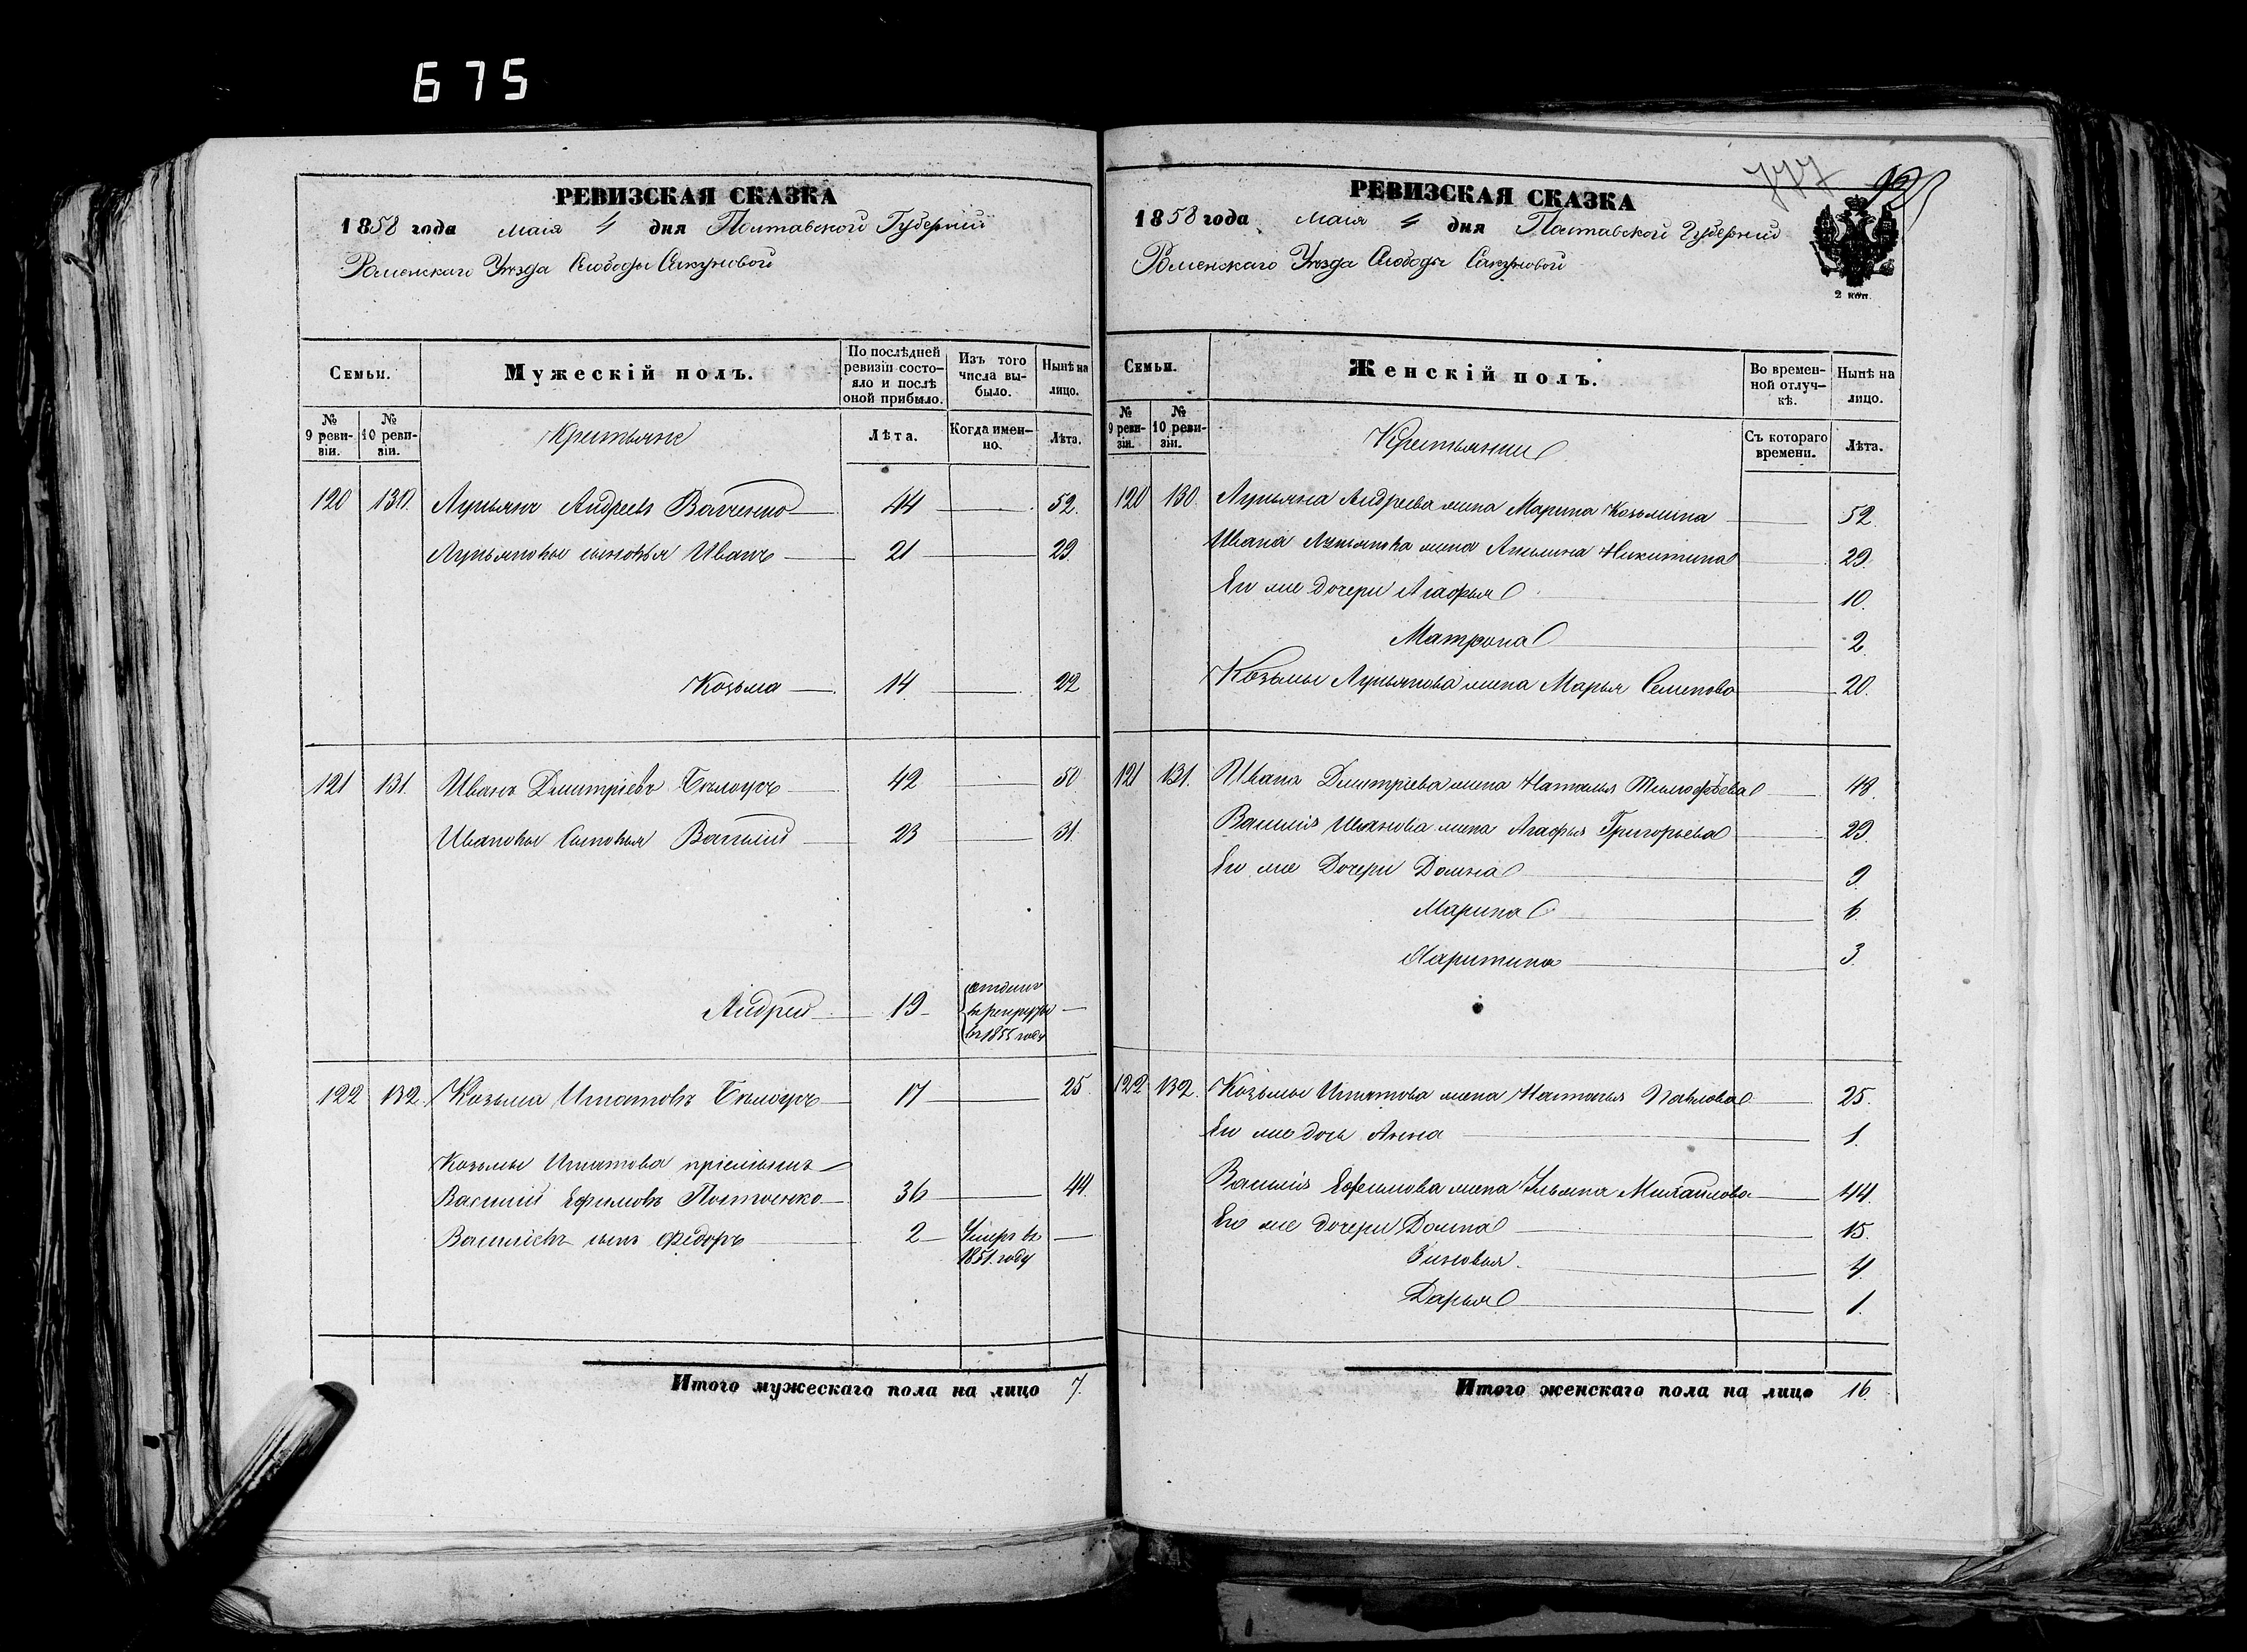 675
РЕВИЗСКАЯ СКАЗКА
1858 года Маія 4 дня Полтавской Губерніи
Роменскаго Уѣзда Слободы Сакуновой
Семьи.
Мужескій полъ.
По послѣдней ревизіи состояло и послѣ оной прибыло.
Изъ того числа выбыло.
Нынѣ на лицо.
№ 9 ревизіи.
№ 10 ревизіи.
Крестьяне
Лѣта.
Когда именно.
Лѣта.
120 130. Лукьянъ Андреевъ 44 52.
Лукьяновы сыновья Иванъ 21 29.
Козьма 14 22
121 131. Иванъ Дмитріевъ Бѣлоусъ 42 50
Ивановы Сыновья Василій 23 31.
Андрей 19 отданъ
въ рекруты
въ 1855 году
122 132. Козьма Игнатовъ Бѣлоусъ 17 25.
Козьмы Игнатова пріемышъ
Василій Ефимовъ 36 44.
Васильевъ сынъ Федоръ 2 Умеръ въ
1851 году
Итого мужескаго пола на лицо 7.
777
РЕВИЗСКАЯ СКАЗКА
1858 года Маія 4 дня Полтавской Губерніи
Роменскаго Уѣзда Слободы Сакуновой
2 коп.
Семьи.
Женскій полъ.
Во временной отлучкѣ.
Нынѣ на лицо.
№ 9 ревизіи.
№ 10 ревизіи.
Крестьянки
Съ котораго времени.
Лѣта.
120 130. Лукьяна Андреева жена Марина Козьмина 52.
Ивана Лукьянова жена Акилина Никитина 29.
Его же дочери Агафья 10.
Матрона 2.
Козьмы Лукьянова жена Марья Семенова 20.
121 131. Ивана Дмитріева жена Наталья Тимофѣева 48.
Василія Иванова жена Агафья Григорьева 29.
Его же Дочери Домна 9.
Марина 6.
Харитина 3.
122 132. Козьмы Игнатова жена Наталья Павлова 25.
Его же дочь Анна 1.
Василія Ефимова жена Ульяна Михайлова 44.
Его же дочери Домна 15.
Зиновья 4.
Дарья 1.
Итого женскаго пола на лицо 16.